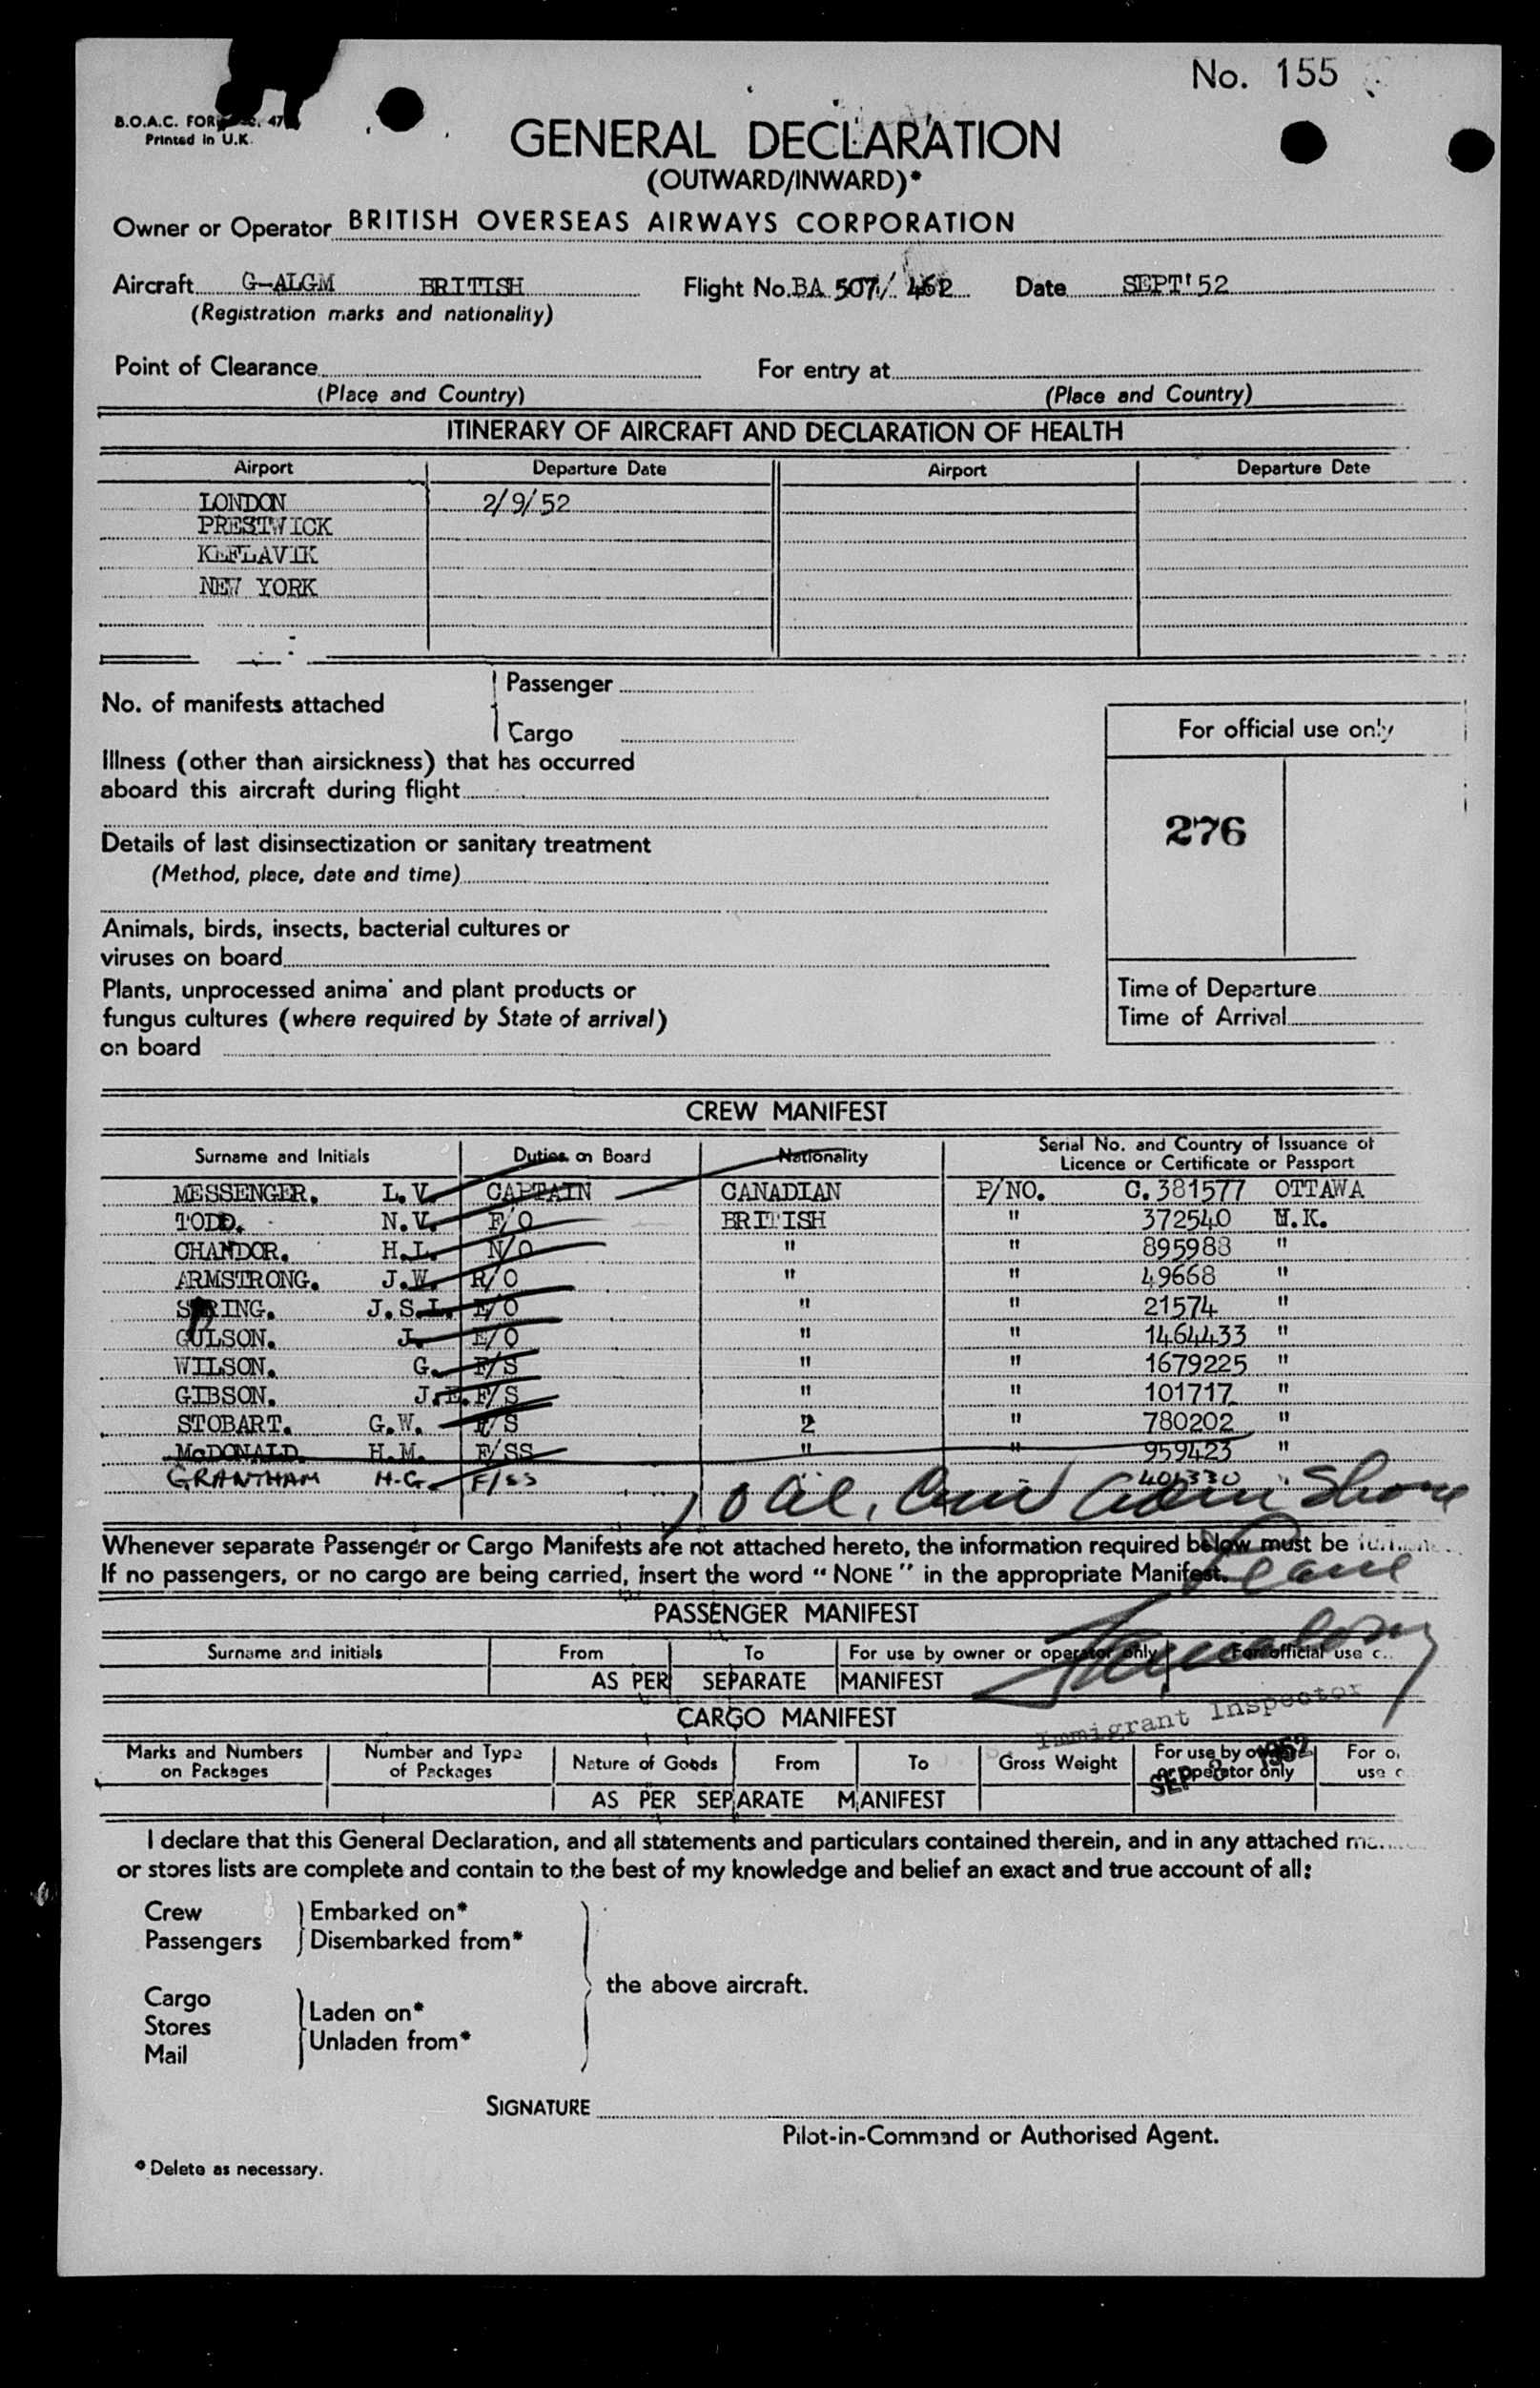 No. 155
B.O.A.C. FOR 47
Printed in U.K.
GENERAL DECLARATION
(OUTWARD/INWARD)*
Owner or Operator BRITISH OVERSEAS AIRWAYS CORPORATION
Aircraft G-ALGM BRITISH Flight No. BA 507/ 462 Date SEPT'52
(Registration marks and nationality)
Point of Clearance For entry at
(Place and Country) (Place and Country)
ITINERARY OF AIRCRAFT AND DECLARATION OF HEALTH
Airport Departure Date Airport Departure Date
LONDON 2/9/52
PRESTWICK
KEFLAVIK
NEW YORK
No. of manifests attached
Passenger
Cargo
For official use only
Illness (other than airsickness) that has occurred
aboard this aircraft during flight
276
Details of last disinsectization or sanitary treatment
(Method, place, date and time)
Animals, birds, insects, bacterial cultures or
viruses on board
Plants, unprocessed anima' and plant products or
fungus cultures (where required by State of arrival)
on board
Time of Departure
Time of Arrival
CREW MANIFEST
Surname and Initials Duties on Board Nationality Serial No. and Country of Issuance of
Licence or Certificate or Passport
MESSENGER. L.V. CAPTAIN CANADIAN P/NO. C.381577 OTTAWA
TODD. N.V. F/O BRITISH " 372540 U.K.
CHANDOR. H.L. N/O " " 895988 "
ARMSTRONG. J.W. R/O " " 49668 "
SPRING. J.S.L. E/O " " 21574 "
GULSON. J. E/O " " 1464433 "
WILSON. G. F/S " " 1679225 "
GIBSON. J.E. F/S " " 101717 "
STOBART. G.W. F/S 2 " 780202 "
McDONALD. H.M. F/SS " " 959423 "
GRANTHAM H.G. F/SS 401330 "
Shore
Leave
Whenever separate Passenger or Cargo Manifests are not attached hereto, the information required below must be
If no passengers, or no cargo are being carried, insert the word "NONE" in the appropriate Manifest.
PASSENGER MANIFEST
Surname and initials From To For use by owner or operator only For official use
AS PER SEPARATE MANIFEST
Immigrant Inspector
CARGO MANIFEST
Marks and Numbers on Packages Number and Type of Packages Nature of Goods From To Gross Weight For use by owner or operator only For use
SEP 1952
AS PER SEPARATE MANIFEST
I declare that this General Declaration, and all statements and particulars contained therein, and in any attached
or stores lists are complete and contain to the best of my knowledge and belief an exact and true account of all:
Crew Embarked on*
Passengers Disembarked from*
the above aircraft.
Cargo
Laden on*
Stores
Unladen from*
Mail
SIGNATURE
Pilot-in-Command or Authorised Agent.
* Delete as necessary.